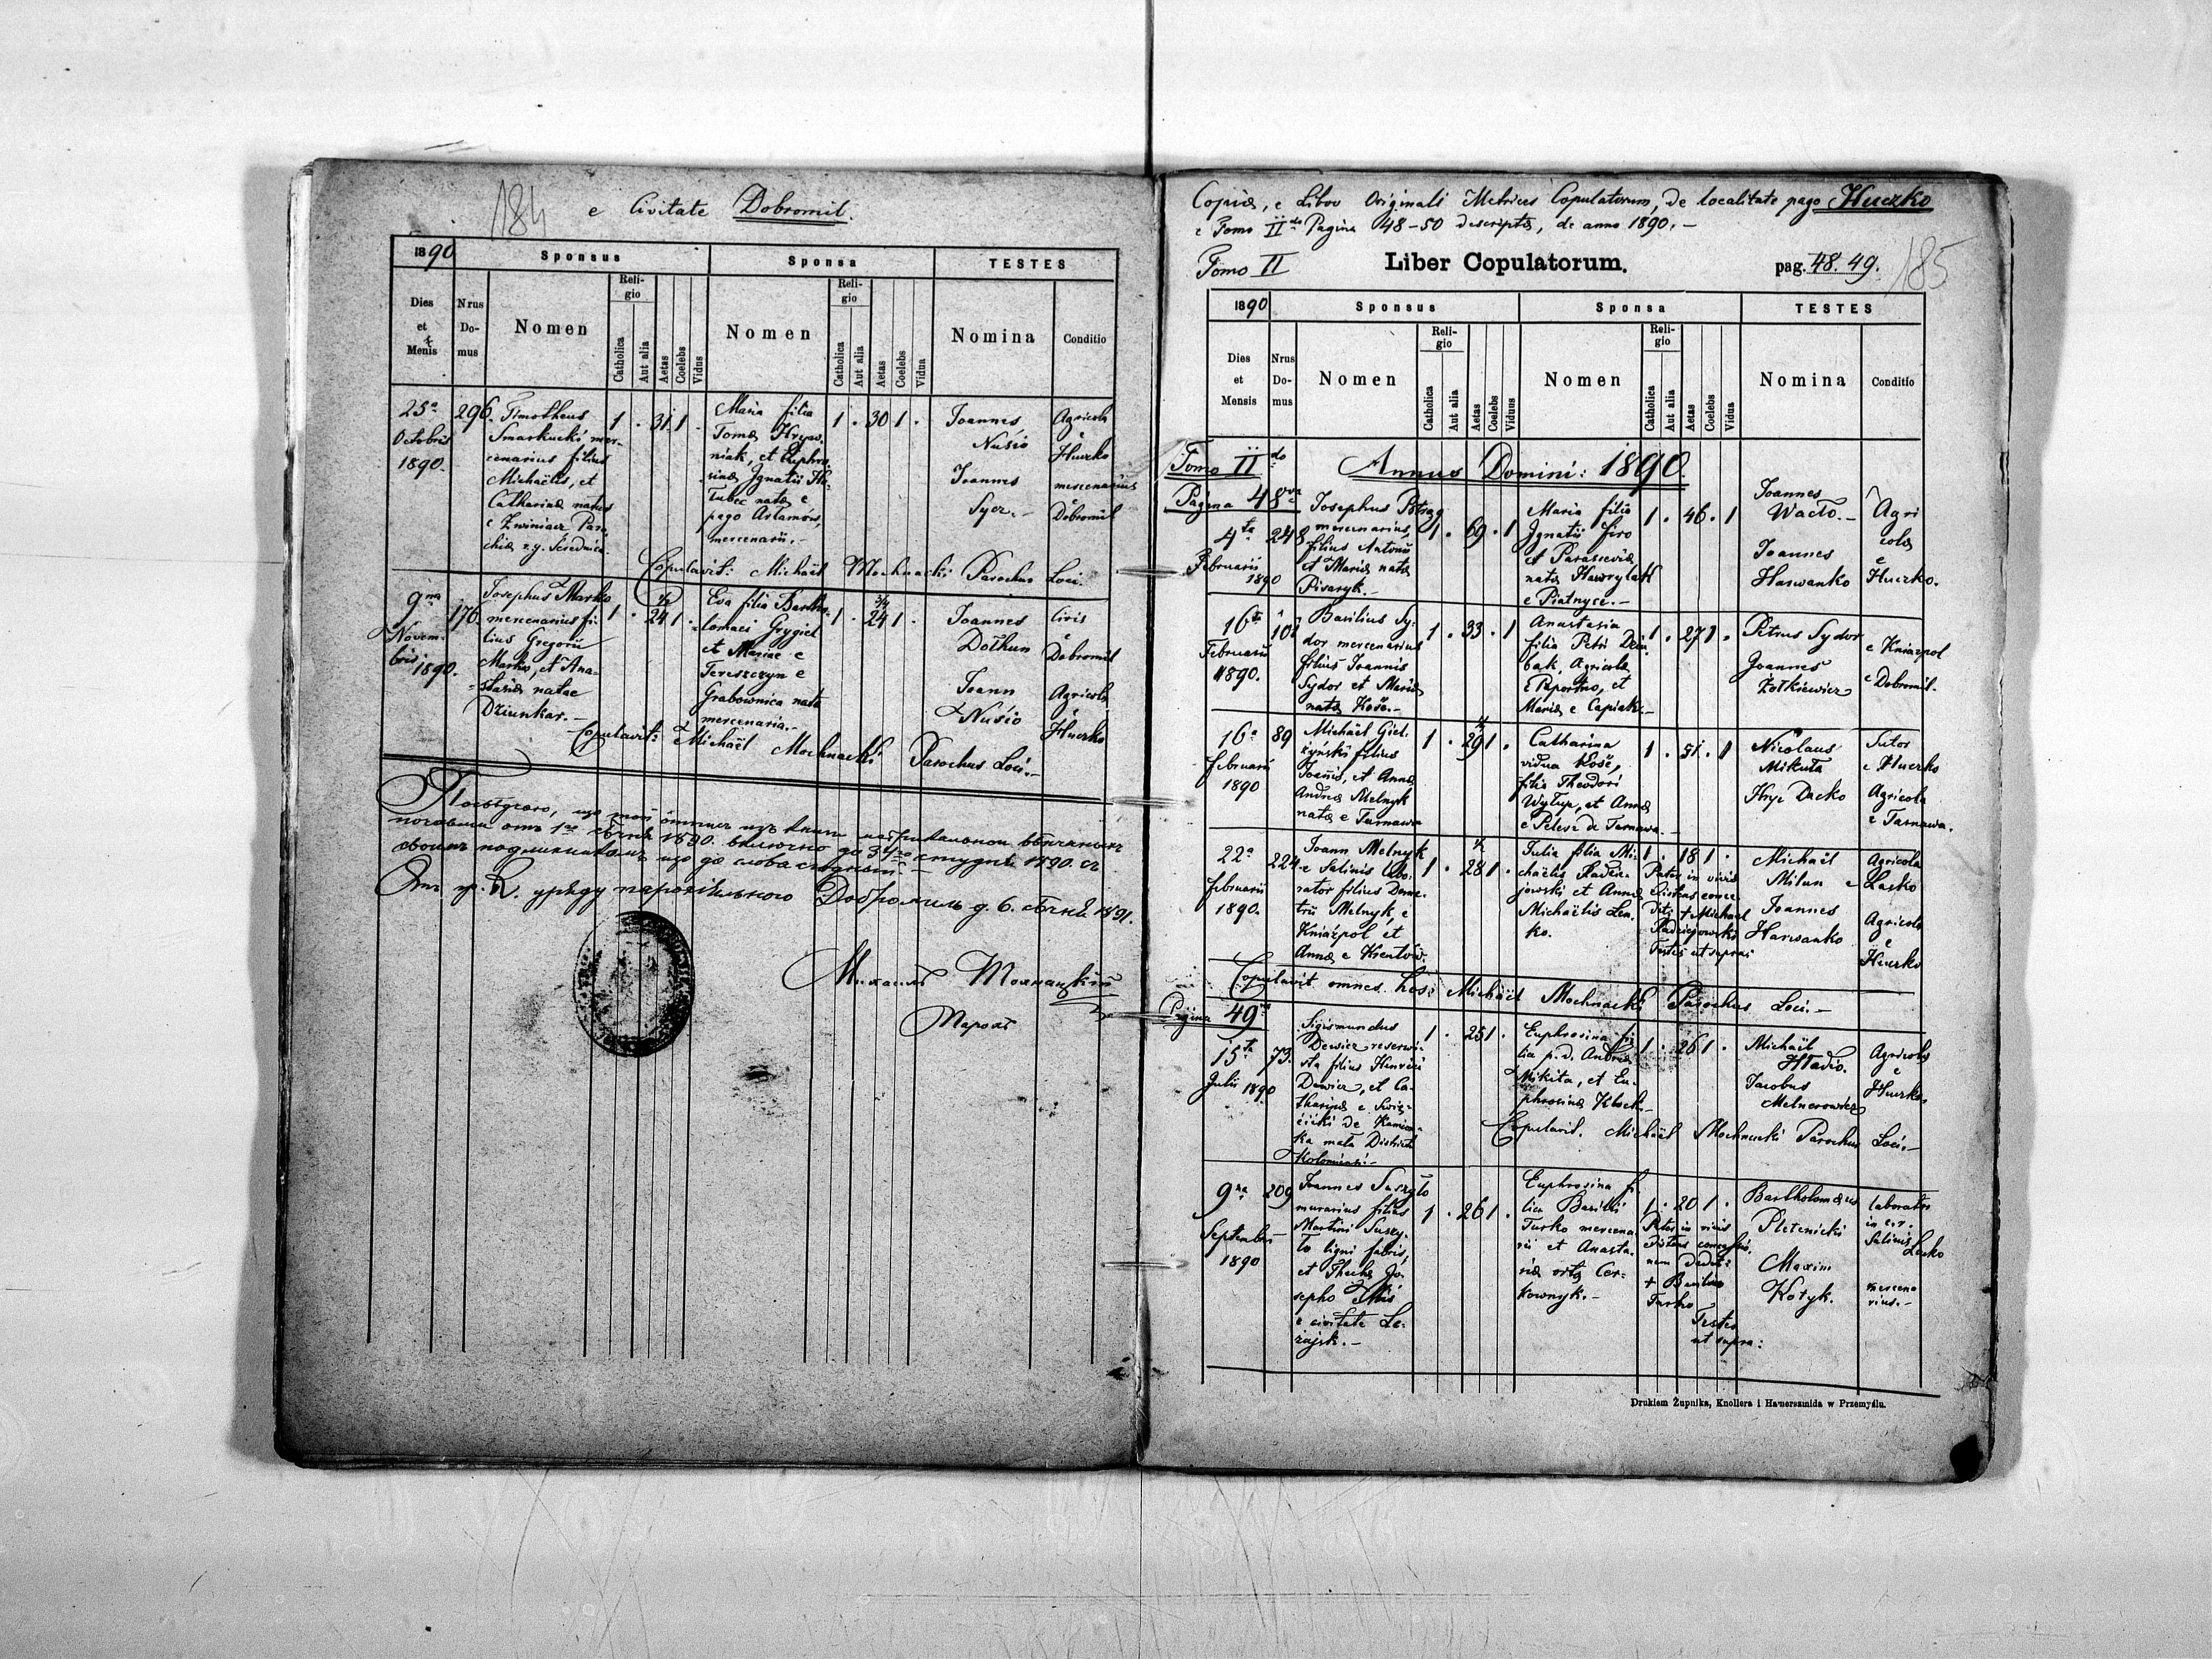 184
e Civitate Dobromil.
1890
Sponsus
Sponsa
TESTES
Dies
et
Mensis
Nrus
Do-
mus
Nomen
Reli-
gio
Catholica
Aut alia
Aetas
Coelebs
Vidus
Nomen
Reli-
gio
Catholica
Aut alia
Aetas
Coelebs
Vidua
Nomina
Conditio
25a
Octobris
1890.
296.
Timotheus
Smarkucki mer-
cenarius filius
Michaëlis, et
Catharinæ natus
e Zwiniacz Paro
chiæ r.g. Serednica
1 . 31 1 .
Maria filia
Tomæ Hryw-
niak, et Euphro
sinæ Ignatii
nata e
pago Artamów,
mercenarii.-
1 . 30 1 .
Joannes
Nusio
Joannes
Sycz.-
Agricola
e
Huczko
mercenarius
e Dobromil
Copulavit: Michaël Mochnacki Parochus Loci.
9na
Novem-
bris
1890.
176.
Josephus Marko
mercenarius fi-
lius Gregorii
Marko, et Ana-
stasiæ natae
Dziunkar.-
1 . 24 1/2 1 .
Eva filia Bartho-
lomaei Grygiel
et Mariae e
Tereszczyn e
Grabownica nata
mercenaria.-
1 . 24 3/4 1 .
Joannes
Dołhun
Joann
Nusio
Civis
e
Dobromil
Agricola
e
Huczko
Copulavit: Michaël Mochnacki Parochus Loci.-
1890.
1890.
Добромиль д. 6. 1891.
Михаилъ Мохнацкій
Парохъ
Copia, e Libro Originali Metrices Copulatorum, de localitate pago Huczko
e Tomo IIdo Pagina 48-50 descripta, de anno 1890.-
Tomo II
Liber Copulatorum.
pag. 48. 49.
185
1890
Sponsus
Sponsa
TESTES
Dies
et
Mensis
Nrus
Do-
mus
Nomen
Reli-
gio
Catholica
Aut alia
Aetas
Coelebs
Viduus
Nomen
Reli-
gio
Catholica
Aut alia
Aetas
Coelebs
Vidua
Nomina
Conditio
Tomo IIdo
Annus Domini: 1890.
Pagina 48
4ta
Februarii
1890
248
Josephus
mercenarius,
filius Antonii
et Mariæ nata
Pisaryk.-
1 . 69 . 1
Maria filia
Ignatii Firo
et Parasceviæ
nata Hawrylak
e Piatnyce.-
1 . 46 . 1
Joannes
Wacło.-
Joannes
Harwanko
Agri
colæ
e
Huczko.
16ta
Februarii
1890.
101
Basilius Sy-
dor mercenarius
filius Joannis
Sydor et Mariæ
nata Kosz.-
1 . 33 . 1
Anastasia
filia Petri
Agricolæ
e Paportno, et
Mariæ e Capiak.-
1 . 27 1 .
Petrus Sydor
Joannes
Żołkiewicz
e Kniazpol
e Dobromil.
16a
februarii
1890
89
Michaël Giel-
filius
Joannis, et Annæ
Andreæ Melnyk
nata e Tarnawa
1 . 29 1/2 1 .
Catharina
vidua Kosz,
filia Theodori
et Annæ
e Pelesz de Tarnawa.-
1 . 51 . 1
Nicolaus
Mikuta
Hryc Dacko
Sutor
e Huczko
Agricola
e Tarnawa.
22a
februarii
1890.
224
Joann Melnyk
e Salinis labo-
rator filius Deme-
trii Melnyk e
Kniazpol et
Annæ e Krentów.
1 . 28 1/2 1 .
Julia filia Mi-
chaëlis Padzie-
jowski et Annæ
Michaëlis Len-
ko.
1 . 18 1 .
Pater in vivis
existens conce-
dit: + Michaël
Padziejowski
Testes ut supra:
Michaël
Milun
Joannes
Harwanko
Agricola
e Lacko
Agricola
e
Huczko
Copulavit omnes hos: Michaël Mochnacki Parochus Loci.-
Pagina 49
15ta
Julii 1890
73.
Sigismundus
Dewicz reservi-
sta filius Henrici
Dewicz, et Ca-
tharinæ e Swię-
cicki de Kamion-
ka mała Districtu
Kolomiensi.-
1 . 25 1 .
Euphrosina fi-
lia p.d. Andreæ
Mikita, et Eu-
phrosinæ
1 . 26 1 .
Michaël
Hładio.
Jacobus
Melnarowicz
Agricolæ
e
Huczko.
Copulavit. Michaël Mochnacki Parochus Loci.-
9na
Septembris
1890
209
Joannes Suszyło
murarius filius
Martini Suszy-
ło ligni fabris,
et Theclæ Jo-
sepho
e civitate Le-
żajsk.-
1 . 26 1 .
Euphrosina fi-
lia Basilii
Turko mercena-
rii et Anasta-
siæ orta Cer-
kownyk.-
1 . 20 1 .
Pater in vivis
existens concessio-
nem dedit:
+ Basilius
Turko
Testes
ut supra:
Bartholomæus
Pletenicki
Maxim
Kotyk.
laborator
in c.r.
Salinis
Lacko
mercena
rius.-
Drukiem Żupnika, Knollera i Hamerszmida w Przemyślu.